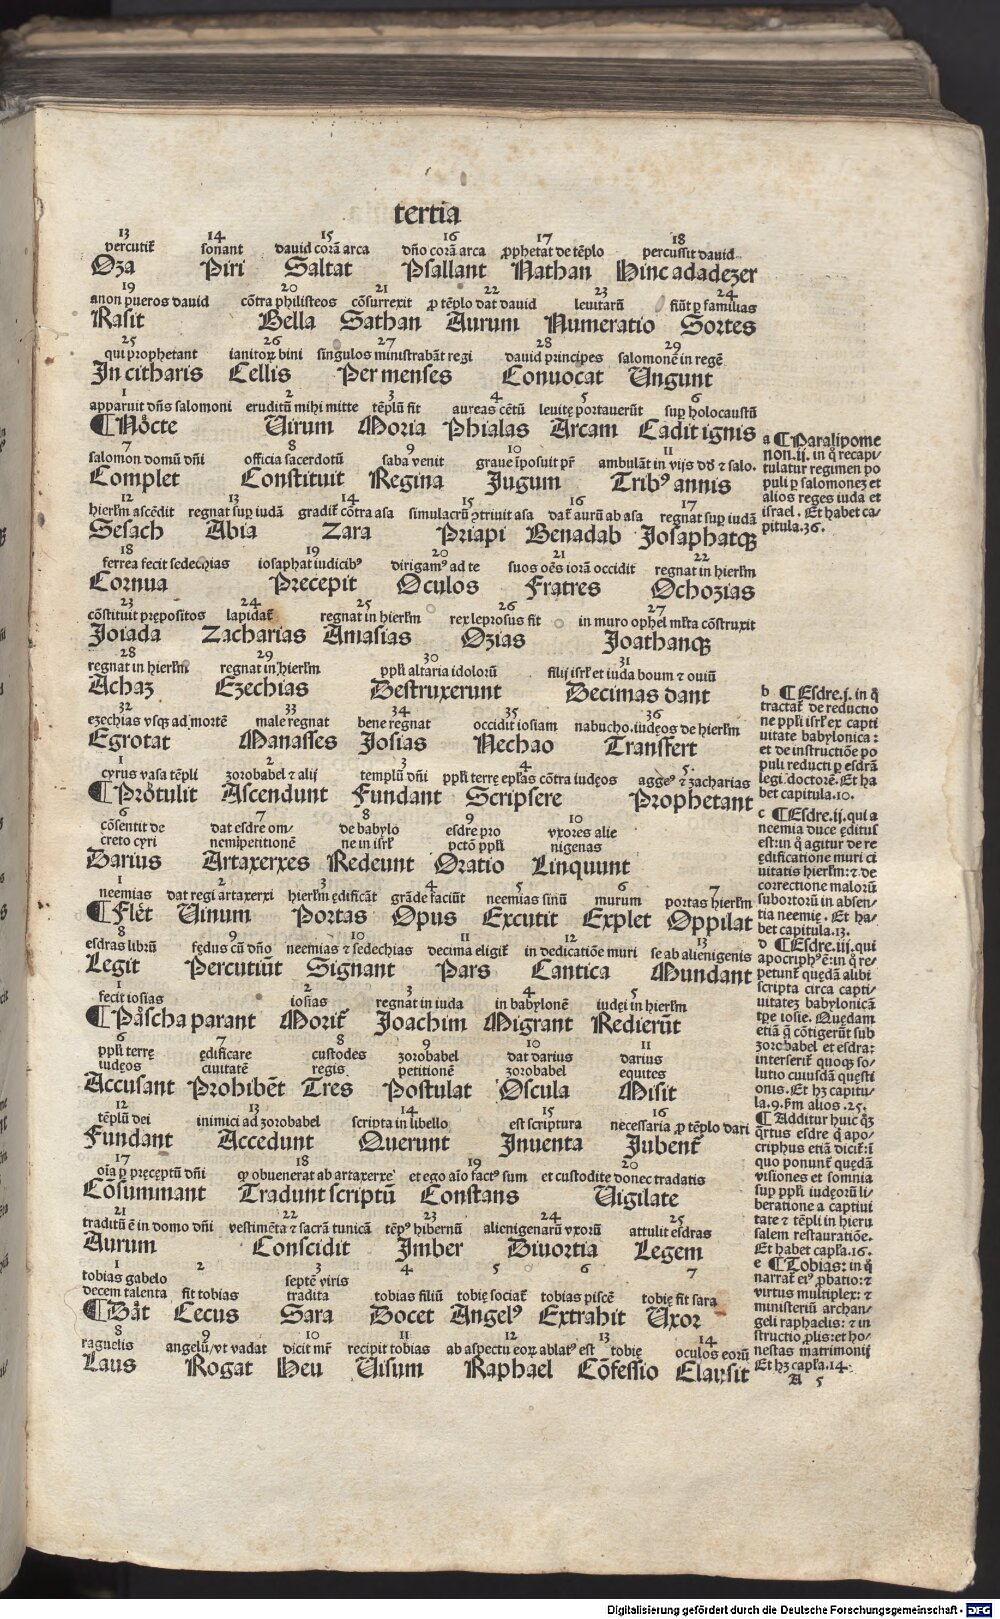 tertia
13 14 15 16 17 18
percutit᷑ sonant dauid corā arca dño corā arca ꝓphetat de tēplo percussit dauid
Oza Piri Saltat Psallant Nathan Hinc adadezer
19 20 21 22 23 24
anon pueros dauid cōtra philisteos cōsurrexit ꝓ tēplo dat dauid leuitarū fiūt ꝑ familias
Rasit Bella Sathan Aurum Numeratio Sortes
25 26 27 28 29
qui prophetant ianitoꝝ bini singulos ministrabāt regi dauid principes salomonē in regē
In citharis Cellis Per menses Conuocat Ungunt
1 2 3 4 5 6
apparuit dñs salomoni eruditū mihi mitte tēplū fit aureas cētū leuitę portauerūt suꝑ holocaustū
¶Nocte Uirum Moria Phialas Arcam Cadit ignis
7 8 9 10 11
salomon domū dñi officia sacerdotū saba venit graue īposuit pr̄ ambulāt in vijs dd̄ ⁊ salo.
Complet Constituit Regina Jugum Tribꝰ annis
12 13 14 15 16 17
hierłm ascēdit regnat suꝑ iudā gradit᷑ cōtra asa simulacrū ꝯtriuit asa dat᷑ aurū ab asa regnat suꝑ iudā
Sesach Abia Zara Priapi Benadab Josaphatqꝫ
18 19 20 21 22
ferrea fecit sedechias iosaphat iudicibꝰ dirigamꝰ ad te suos oēs iorā occidit regnat in hierłm
Cornua Precepit Oculos Fratres Ochozias
23 24 25 26 27
cōstituit prępositos lapidat᷑ regnat in hierłm rex leprosus fit in muro ophel młta cōstruxit
Joiada Zacharias Amasias Ozias Joathanqꝫ
28 29 30 31
regnat in hierłm regnat in hierłm ppłi altaria idolorū filij isrł et iuda boum ⁊ ouiū
Achaz Ezechias Destruxerunt Decimas dant
32 33 34 35 36
ezechias vsqꝫ ad mortē male regnat bene regnat occidit iosiam nabucho.iudęos de hierłm
Egrotat Manasses Josias Nechao Transfert
1 2 3 4 5
cyrus vasa tēpli zorobabel ⁊ alij templū dñi ppłi terrę epłas cōtra iudęos aggeꝰ ⁊ zacharias
¶Protulit Ascendunt Fundant Scripsere Prophetant
6 7 8 9 10
cōsentit de dat esdre om/ de babylo esdre pro vxores alie
creto cyri nem petitionē ne in isrł pctō ppłi nigenas
Darius Artaxerxes Redeunt Oratio Linquunt
1 2 3 4 5 6 7
neemias dat regi artaxerxi hierłm ędificāt grāde faciūt neemias sinū murum portas hierłm
¶Flet Uinum Portas Opus Excutit Explet Oppilat
8 9 10 11 12 13
esdras librū fędus cū dño neemias ⁊ sedechias decima eligit᷑ in dedicatiōe muri se ab alienigenis
Legit Percutiūt Signant Pars Cantica Mundant
1 2 3 4 5
fecit iosias iosias regnat in iuda in babylonē iudęi in hierłm
¶Pascha parant Morit᷑ Joachim Migrant Redierūt
6 7 8 9 10 11
ppłi terrę ędificare custodes zorobabel dat darius darius
iudęos ciuitatē regis petitionē zorobabel equites
Accusant Prohibēt Tres Postulat Oscula Misit
12 13 14 15 16
tēplū dei inimici ad zorobabel scripta in libello est scriptura necessaria ꝓ tēplo dari
Fundant Accedunt Querunt Inuenta Jubent᷑
17 18 19 20
oīa ꝑ pręceptū dñi ꝙ obuenerat ab artaxerxe et ego aīo factꝰ sum et custodite donec tradatis
Cōsummant Tradunt scriptū Constans Uigilate
21 22 23 24 25
traditū ē in domo dñi vestimēta ⁊ sacrā tunicā tēpꝰ hibernū alienigenarū vxorū attulit esdras
Aurum Conscidit Imber Diuortia Legem
1 2 3 4 5 6 7
tobias gabelo septē viris
decem talenta fit tobias tradita tobias filiū tobię sociat᷑ tobias piscē tobię fit sara
¶Dat Cecus Sara Docet Angelꝰ Extrahit Uxor
8 9 10 11 12 13 14
raguelis angelū/vt vadat dicit mr̄ recipit tobias ab aspectu eoꝝ ablatꝰ est tobię oculos eorū
Laus Rogat Heu Uisum Raphael Cōfessio Clausit
a ¶Paralipome
non.ij. in q̄ recapi/
tulatur regimen po
puli ꝑ salomonez et
alios reges iuda et
israel. Et habet ca/
pitula.36.
b ¶Esdre.j. in q̄
tractat᷑ de reductio
ne ppłi isrł ex capti
uitate babylonica:
et de instructiōe po
puli reducti ꝑ esdrā
legi doctorē. Et ha
bet capitula.10.
c ¶Esdre.ij.qui a
neemia duce ęditus
est:in q̄ agitur de re
ędificatione muri ci
uitatis hierłm: ⁊ de
correctione malorū
subortorū in absen/
tia neemię. Et ha/
bet capitula.13.
d ¶Esdre.iij.qui
apocriphꝰ ē:in q̄ re/
petunt᷑ quędā alibi
scripta circa capti/
uitatez babylonicā
tp̄e iosie. Quędam
etiā q̄ cōtigerūt sub
zorobabel et esdra:
interserit᷑ quoqꝫ so/
lutio cuiusdā questi
onis. Et hꝫ capitu/
la.9.ẜm alios.25.
¶Additur huic qꝫ
q̄rtus esdre q̄ apo/
criphus etiā dicit᷑:ī
quo ponunt᷑ quędā
visiones et somnia
suꝑ ppłi iudęorū li/
beratione a captiui
tate ⁊ tēpli in hieru
salem restauratiōe.
Et habet capła.16.
e ¶Tobias: in q̄
narrat᷑ eiꝰ ꝓbatio:⁊
virtus multiplex: ⁊
ministeriū archan/
geli raphaelis: ⁊ in
structio ꝓlis:et ho/
nestas matrimonij
Et hꝫ capła.14.
A 5
Digitalisierung gefördert durch die Deutsche Forschungsgemeinschaft - DFG